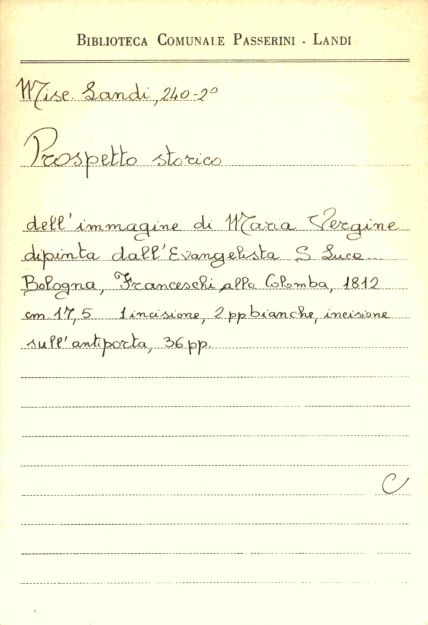 BIBLIOTECA COMUNALE PASSERINI - LANDI
Misc. Landi, 240-2°
Prospetto storico
dell'immagine di Maria Vergine
dipinta dall'Evangelista S Luca...
Bologna, Franceschi, alla Colomba, 1812
cm 17,5 1 incisione, 2 pp bianche, incisione
sull'antiporta, 36 pp.
C